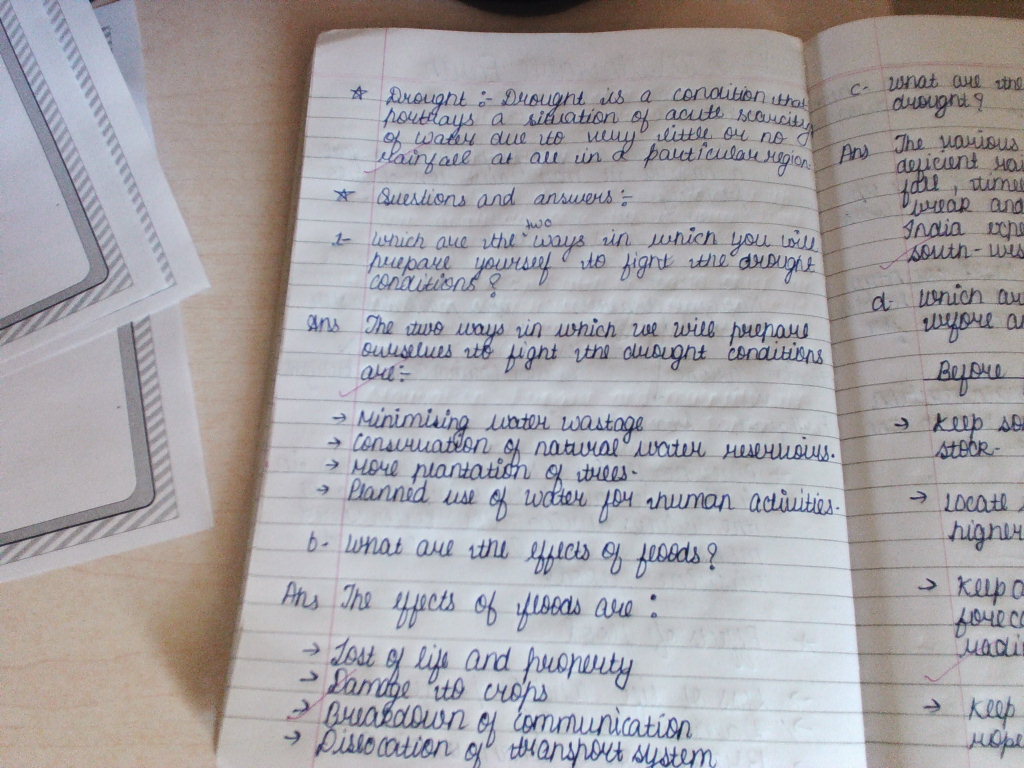 ☆ Drought :- Drought is a condition that
portrays a situation of acute scarcity
of water due to very little or no
rainfall at all in a particular region.
☆ Questions and answers :-
1- Which are the two ways in which you will
prepare yourself to fight the drought
conditions?
Ans The two ways in which we will prepare
ourselves to fight the drought conditions
are:-
→ Minimising water wastage
→ Conservation of natural water reservoirs.
→ More plantation of trees.
→ Planned use of water for human activities.
b- What are the effects of floods?
Ans The effects of floods are :
→ Lost of life and property
→ Damage to crops
→ Breakdown of communication
→ Dislocation of transport system
c- What are the
drought?
Ans The various
deficient
fall,
weak and
India
south-
d- Which
before
Before
→ Keep
stock.
→ Locate
higher
→ Keep
→ Keep